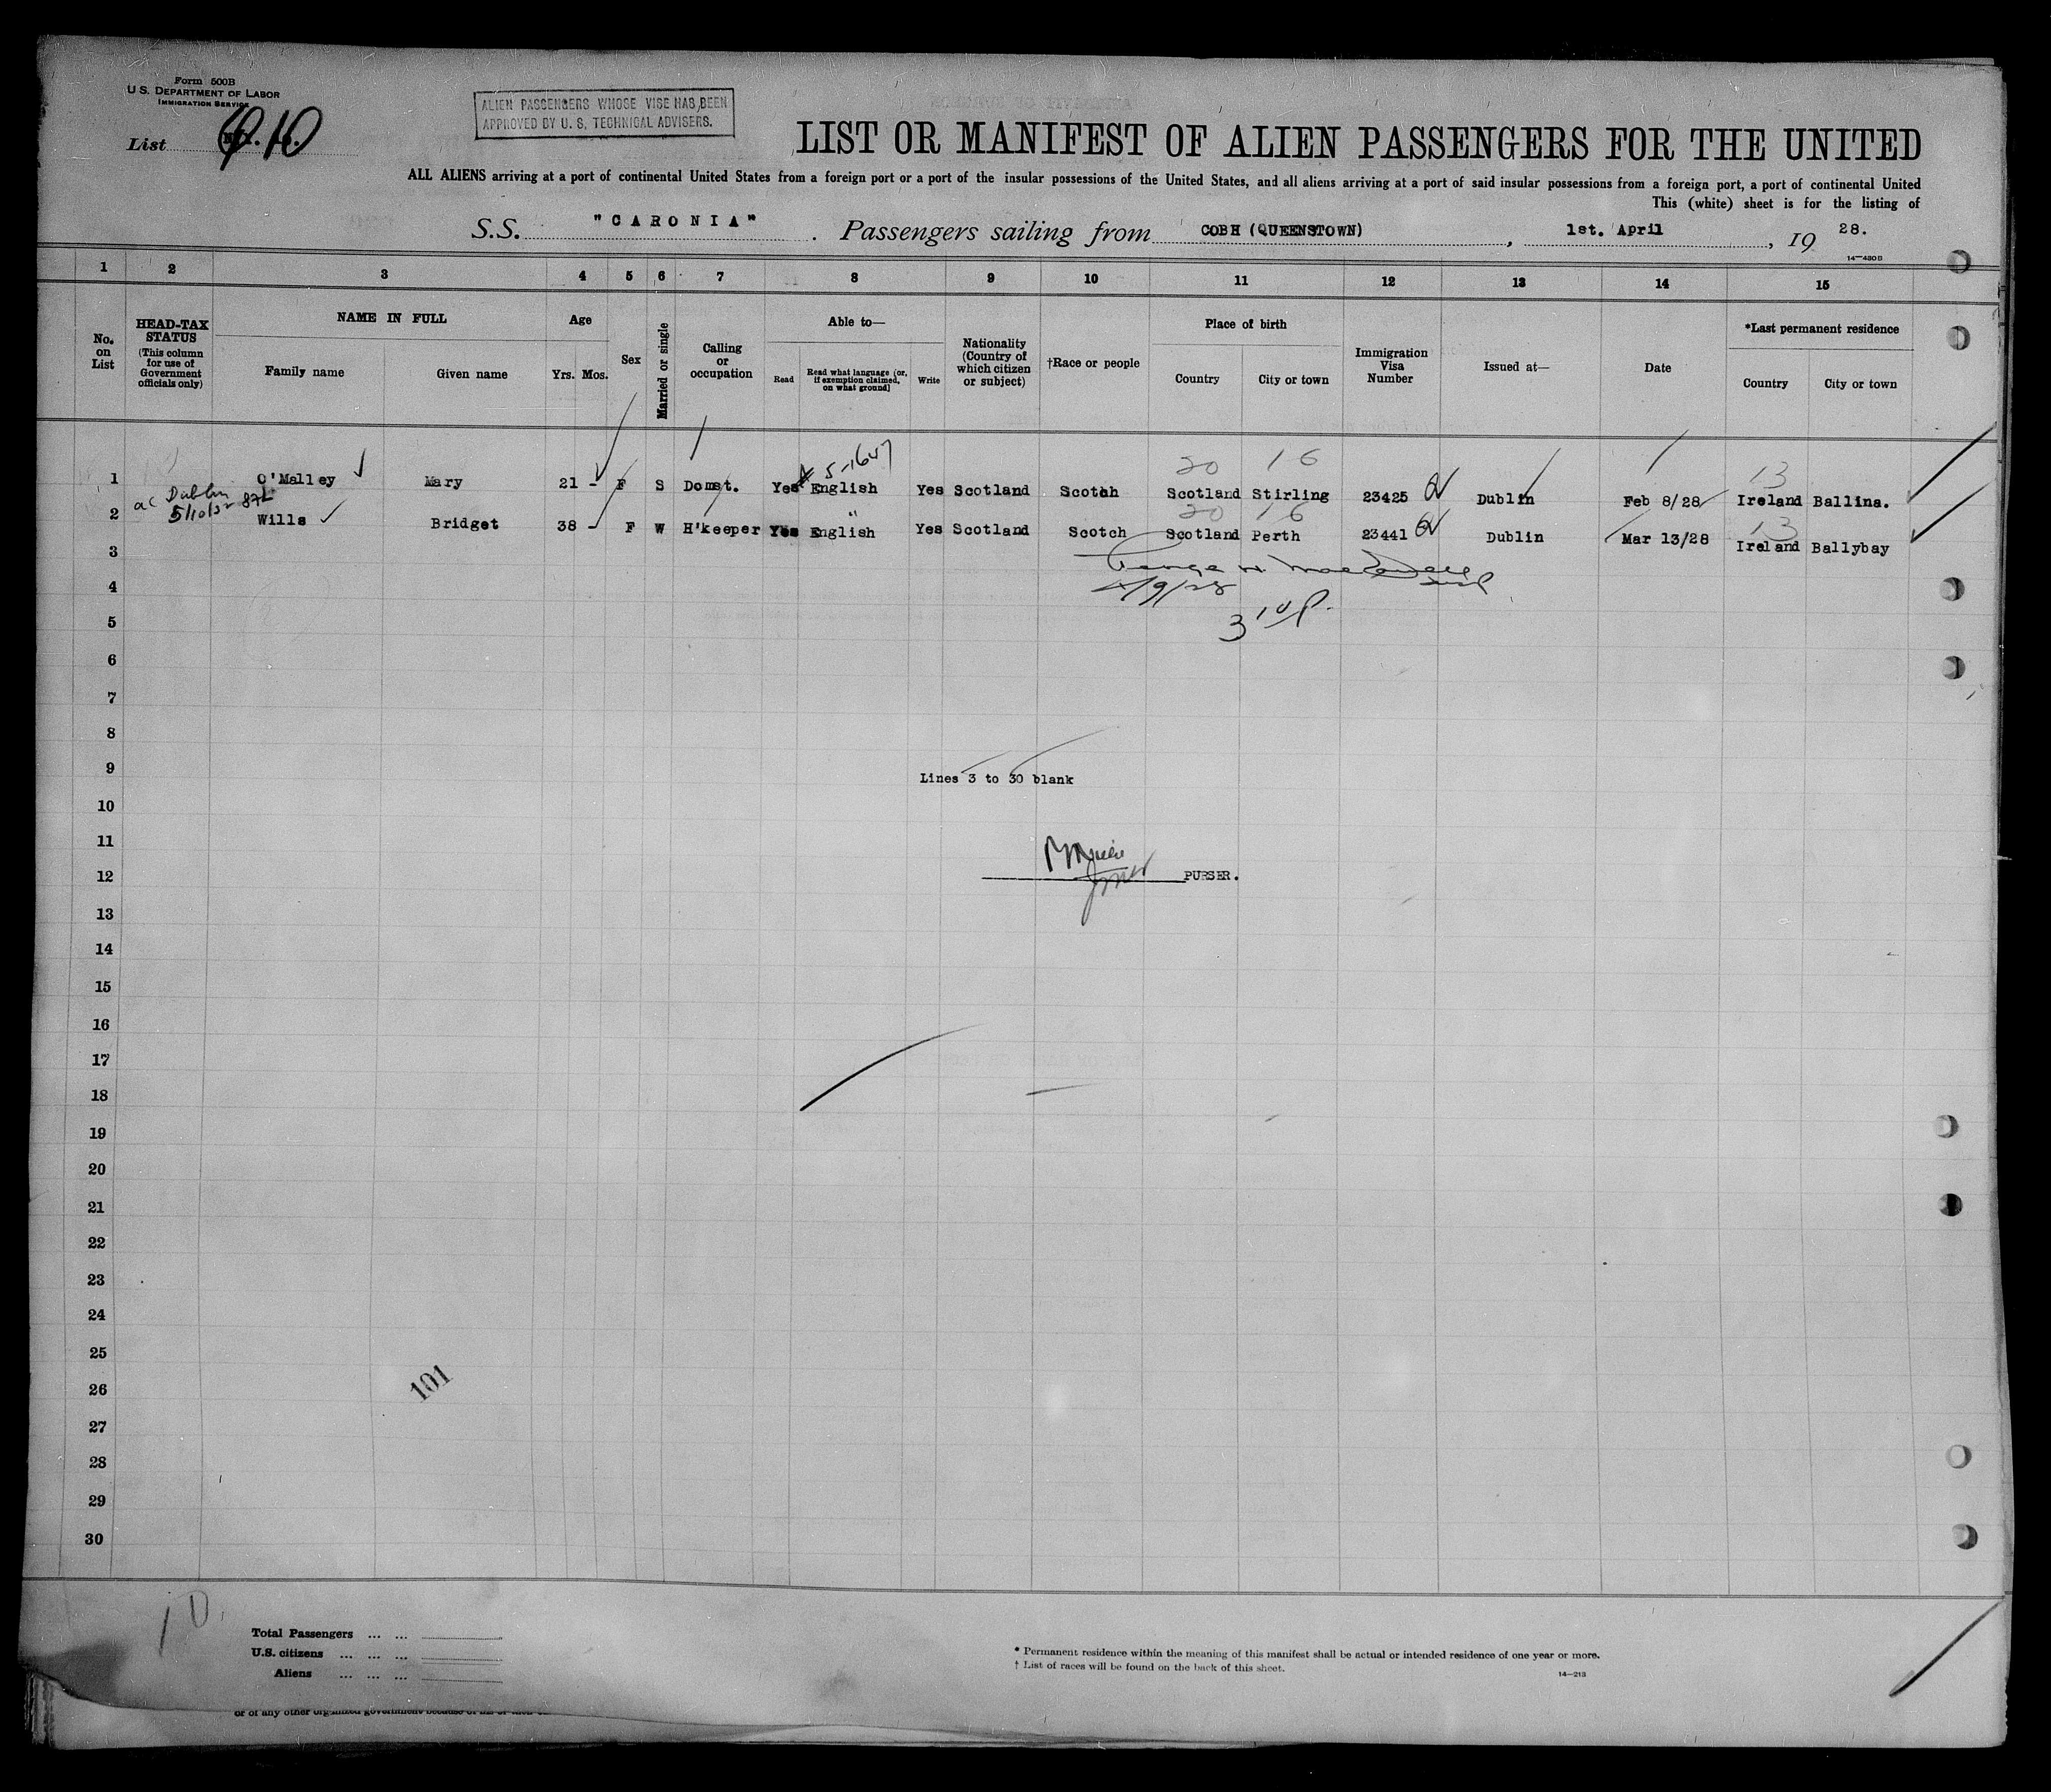 Form 500B
U.S. DEPARTMENT OF LABOR
IMMIGRATION SERVICE
List 10
ALIEN PASSENGERS WHOSE VISE HAS BEEN
APPROVED BY U. S, TECHNICAL ADVISERS.
LIST OR MANIFEST OF ALIEN PASSENGERS FOR THE UNITED
ALL ALIENS arriving at a port of continental United States from a foreign port or a port of the insular possessions of the United States, and all aliens arriving at a port of said insular possessions from a foreign port, a port of continental United
This (white) sheet is for the listing of
S.S. "CARONIA" . Passengers sailing from COBH (QUEENSTOWN) , 1st. April , 19 28.
14—430B
1 2 3 4 5 6 7 8 9 10 11 12 13 14 15
No. on List
HEAD-TAX STATUS (This column for use of Government officials only)
NAME IN FULL
Family name Given name
Age
Yrs. Mos.
Sex
Married or single
Calling or occupation
Able to—
Read Read what language [or, if exemption claimed, on what ground] Write
Nationality (Country of which citizen or subject)
†Race or people
Place of birth
Country City or town
Immigration Visa Number
Issued at—
Date
*Last permanent residence
Country City or town
5-1647
20 16 13
1 O'Malley Mary 21 - F S Domst. Yes English Yes Scotland Scotch Scotland Stirling 23425 Dublin Feb 8/28 Ireland Ballina.
Dublin
5/10/32
20 16 13
2 Wills Bridget 38 - F W H'keeper Yes English Yes Scotland Scotch Scotland Perth 23441 Dublin Mar 13/28 Ireland Ballybay
3
4 4/9/28
5
6
7
8
9 Lines 3 to 30 blank
10
11
12 PURSER.
13
14
15
16
17
18
19
20
21
22
23
24
25
26 101
27
28
29
30
10
Total Passengers ... ...
U.S. citizens ... ... ...
Aliens ... ... ...
* Permanent residence within the meaning of this manifest shall be actual or intended residence of one year or more.
† List of races will be found on the back of this sheet.
14—213
or of any other organized government because of